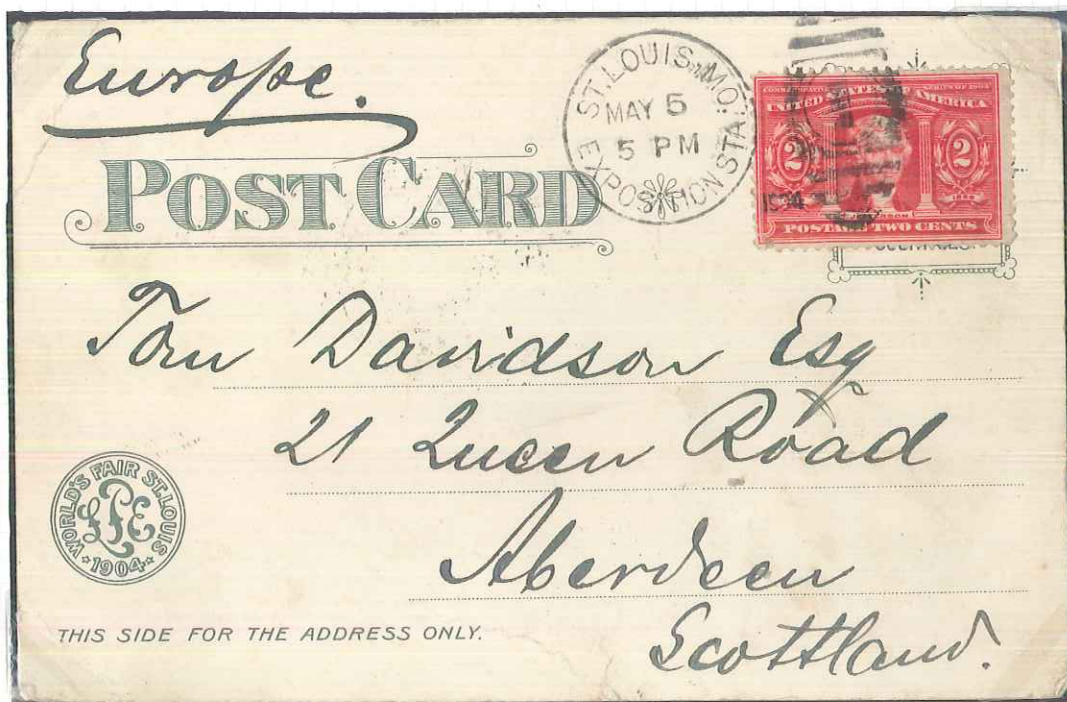 Europe.
POST CARD
ST. LOUIS, MO.
MAY 5
5 PM
EXPOSITION STA.
1904
COMMEMORATIVE SERIES OF 1904
UNITED STATES OF AMERICA
2 2
POSTAGE TWO CENTS
Tom Davidson Esq
21 Queen Road
Aberdeen
Scottland.
WORLD'S FAIR ST. LOUIS
LPE
1904
THIS SIDE FOR THE ADDRESS ONLY.